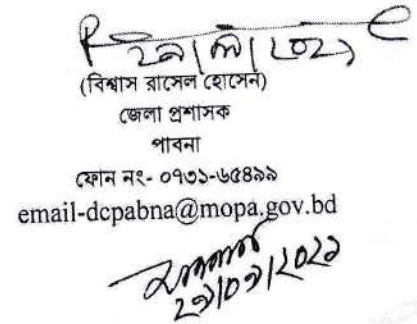 (বিশ্বাস রাসেল হোসেন)
জেলা প্রশাসক
পাবনা
ফোন নং- ০৭৩১-৬৫৪৯৯
email-dcpabna@mopa.gov.bd